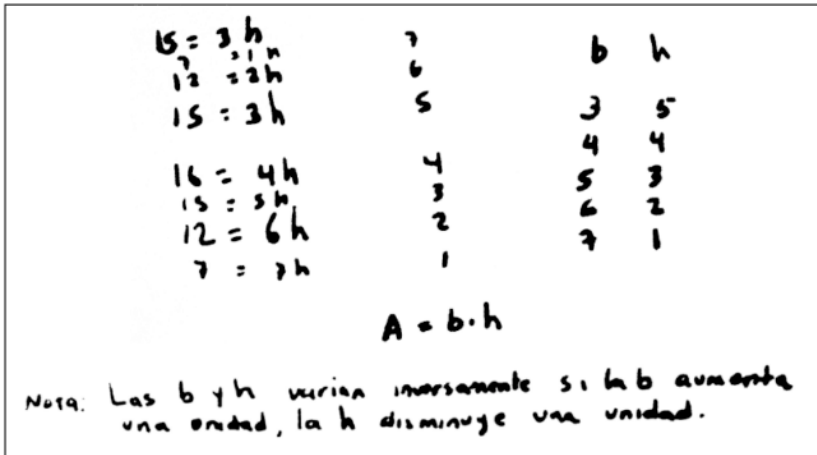 15 = 3h 7
7 = 1h
12 = 2h 6
15 = 3h 5
16 = 4h 4
15 = 5h 3
12 = 6h 2
7 = 7h 1
b h
3 5
4 4
5 3
6 2
7 1
A = b·h
Nota: Las b y h varian inversamente si la b aumenta
una unidad, la h disminuye una unidad.